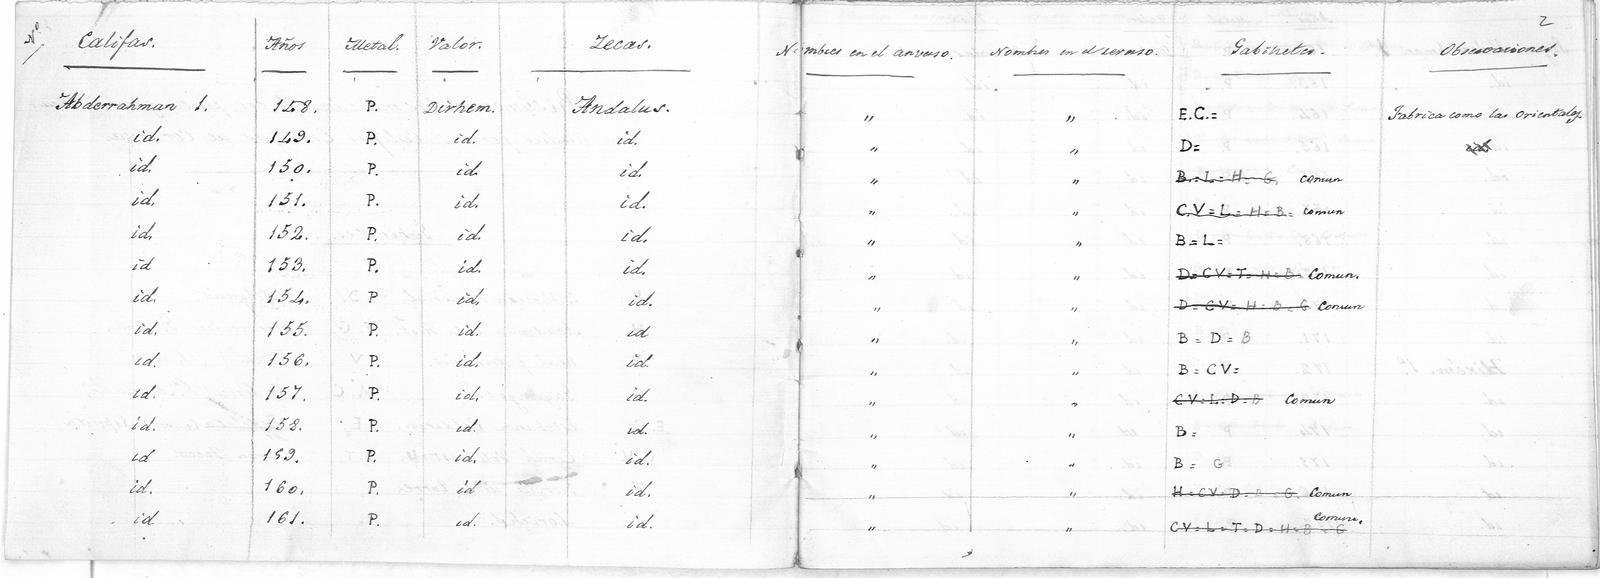 2
Nº Califas. Años Metal. Valor. Zecas. Nombres en el anverso. Nombres en el reverso. Gabinetes. Observaciones.
Abderrahman 1. 148. P. Dirhem. Andalus. " " E.C.= Fabrica como las orientales.
id. 149. P. id. id. " " D=
id. 150. P. id. id. " " B.=L=H=G. comun
id. 151. P. id. id. " " C.V=L=H=B= comun
id. 152. P. id. id. " " B=L=
id 153. P. id. id. " " D=CV=T=H=B= Comun.
id. 154. P id. id. " " D=CV=H=B=G Comun
id. 155. P. id. id " " B=D=B
id. 156. P. id. id. " " B=CV=
id. 157. P. id. id. " " CV=L=D=B Comun
id. 158. P. id. id. " " B=
id 159. P. id. id. " " B= G
id. 160. P. id id. " " H=CV=D=B=G Comun
id 161. P. id. id. " " CV=L=T=D=H=B=G Comun.